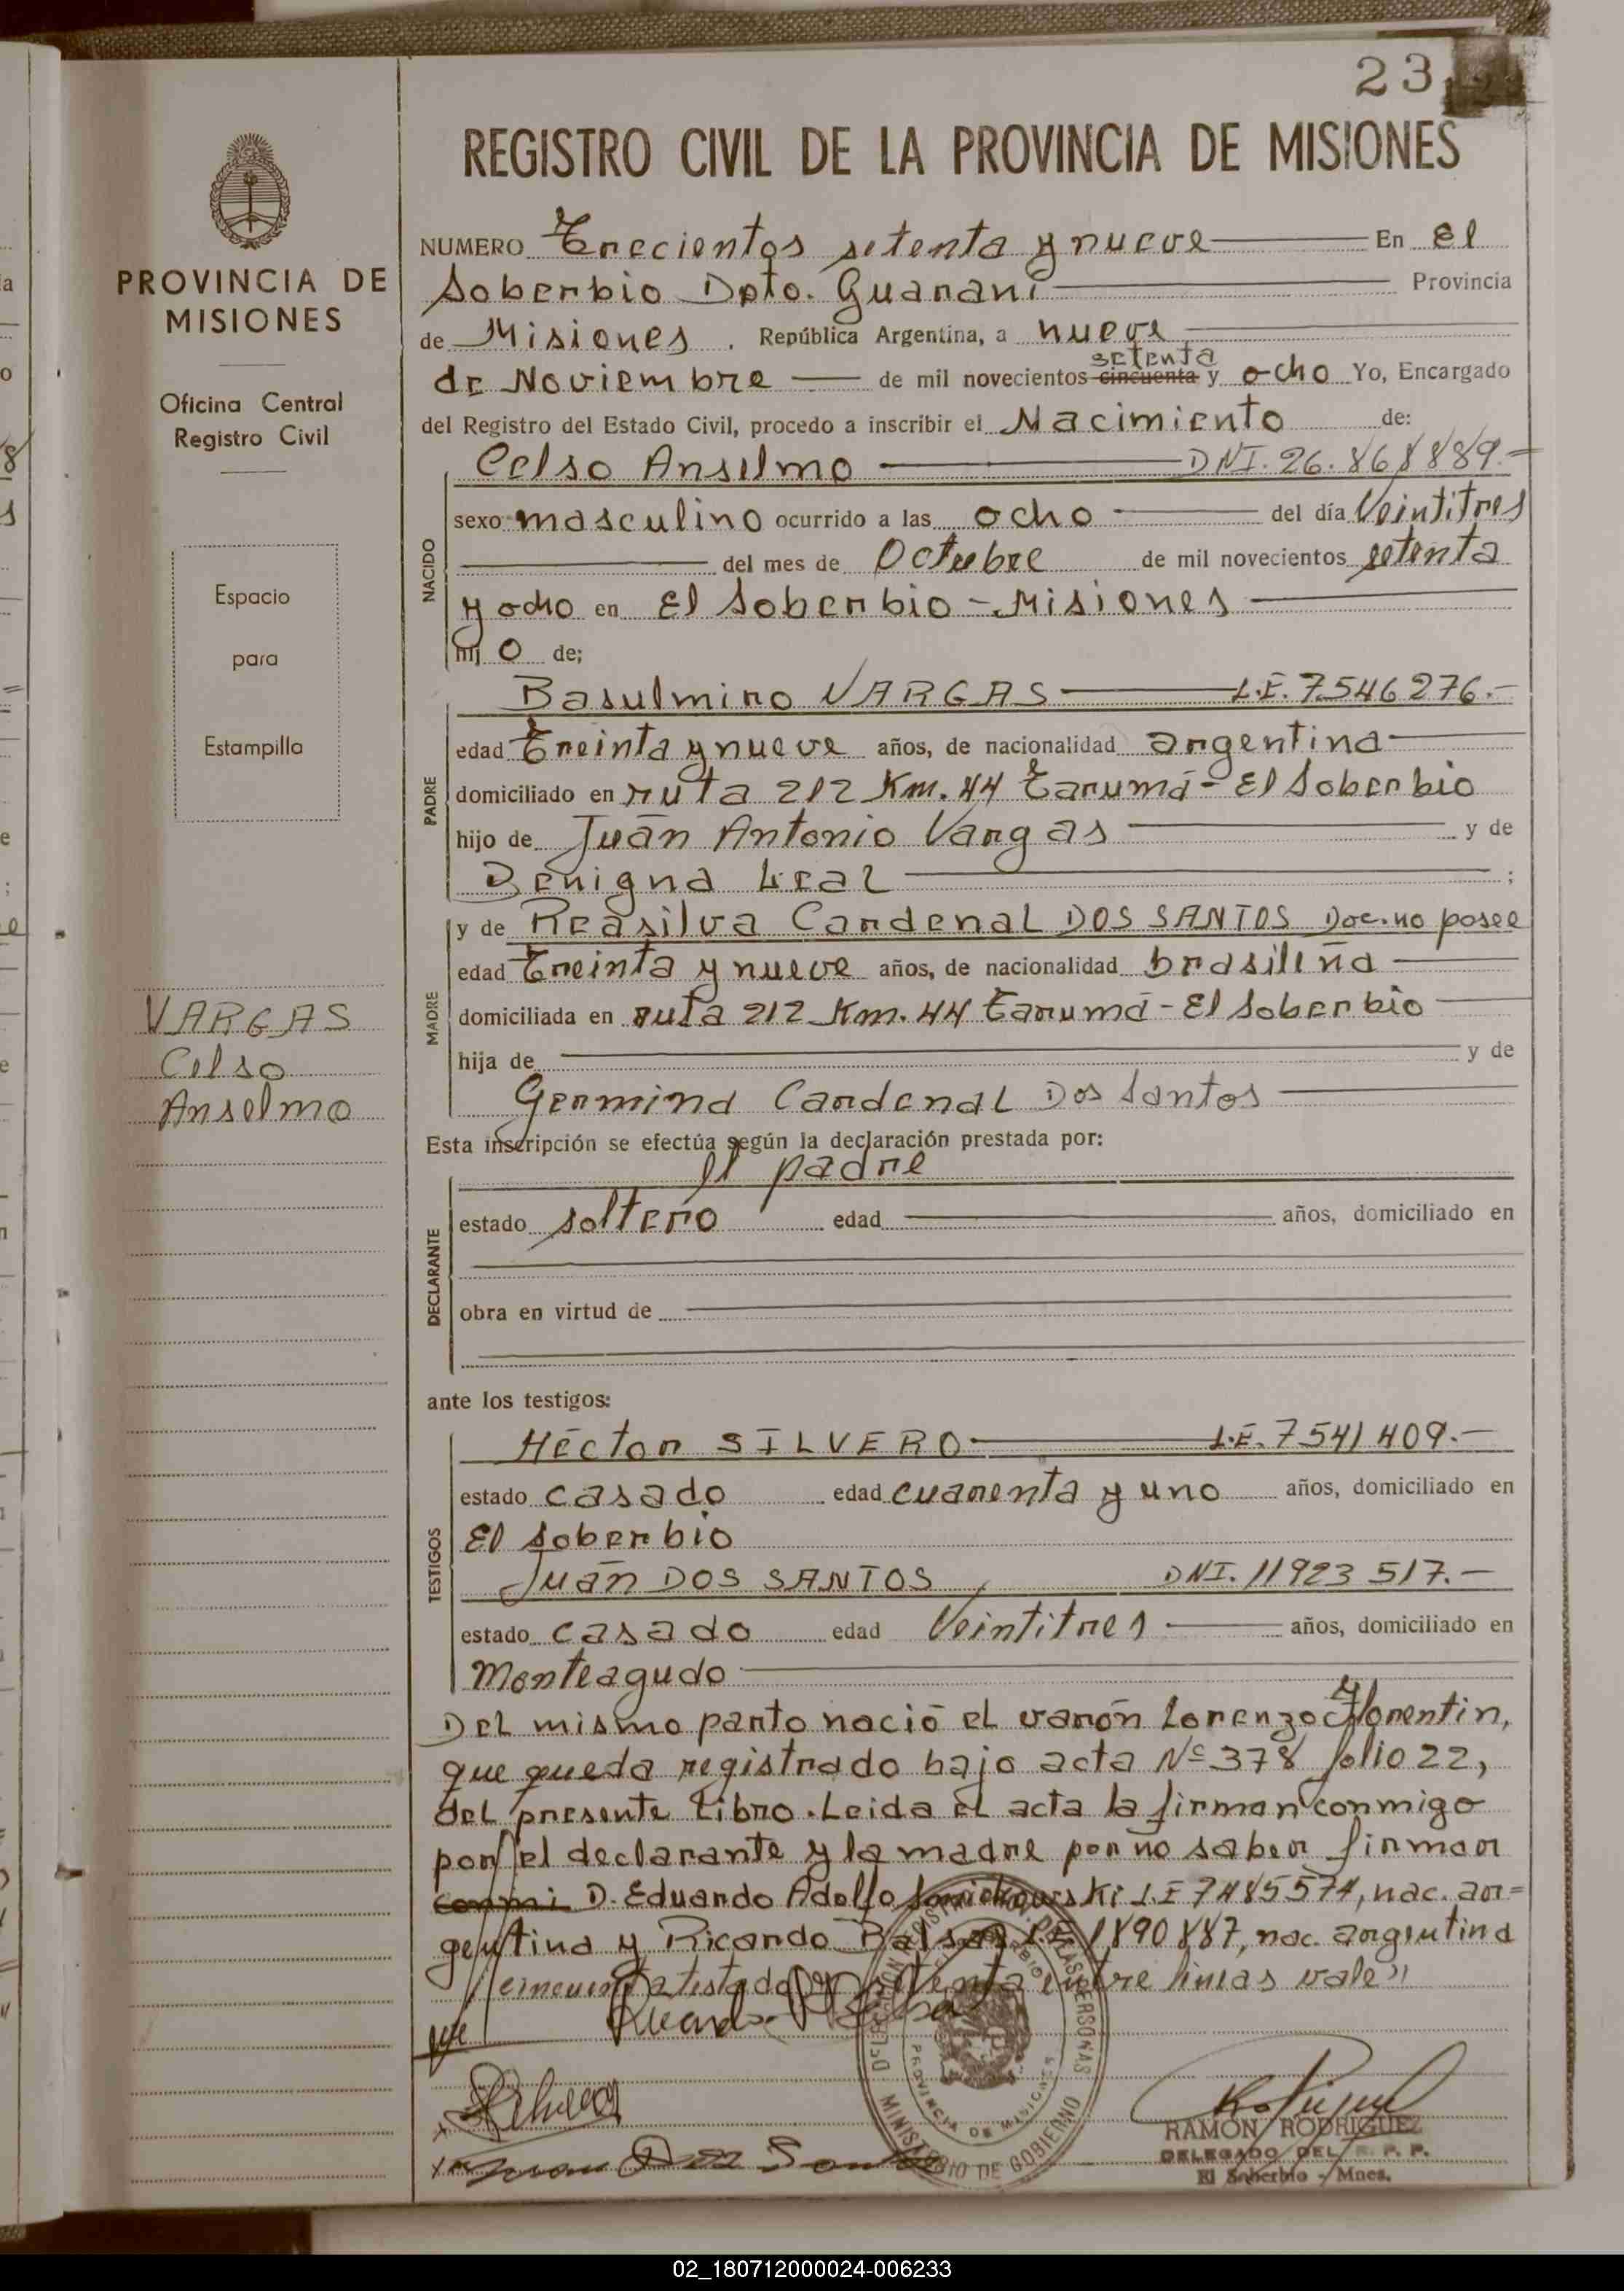 23
REGISTRO CIVIL DE LA PROVINCIA DE MISIONES
PROVINCIA DE
MISIONES
Oficina Central
Registro Civil
Espacio
para
Estampilla
VARGAS
Celso
Anselmo
NUMERO Trecientos setenta y nueve En El
Soberbio Dpto. Guaraní Provincia
de Misiones. República Argentina, a nueve
setenta
de Noviembre de mil novecientos cincuenta y ocho Yo, Encargado
del Registro del Estado Civil, procedo a inscribir el Nacimiento de:
Celso Anselmo DNI. 26.868889.-
NACIDO
sexo masculino ocurrido a las ocho del día Veintitres
del mes de Octubre de mil novecientos setenta
y ocho en El Soberbio - Misiones
hijo de;
Basulmiro VARGAS L.E. 7.546276.-
PADRE
edad Treinta y nueve años, de nacionalidad argentina
domiciliado en ruta 212 Km. 44 Tarumá - El Soberbio
hijo de Juan Antonio Vargas y de
Benigna Leal ;
MADRE
y de Reasilva Cardenal DOS SANTOS Doc. no posee
edad Treinta y nueve años, de nacionalidad brasileña
domiciliada en ruta 212 Km. 44 Tarumá - El Soberbio
hija de y de
Germina Cardenal Dos Santos
Esta inscripción se efectúa según la declaración prestada por:
el padre
DECLARANTE
estado soltero edad años, domiciliado en
obra en virtud de
ante los testigos:
TESTIGOS
Héctor SILVERO L.E. 7541409.-
estado casado edad cuarenta y uno años, domiciliado en
El Soberbio
Juan DOS SANTOS DNI. 11923517.-
estado casado edad Veintitres años, domiciliado en
Monteagudo
Del mismo parto nació el varón Lorenzo Florentin,
que queda registrado bajo acta Nº 378 folio 22,
del presente Libro. Leida el acta la firman conmigo
por el declarante y la madre por no saber firmar
conmi D. Eduardo Adolfo L.E 7485574, nac. ar=
gentina y Ricardo L.E 1890887, nac. argentina
cincuenta testado setenta entre lineas vale"
Juan Dos Santos
MINISTERIO DE GOBIERNO
PROVINCIA DE MISIONES
RAMON RODRIGUEZ
DELEGADO DEL R. P. P.
El Soberbio - Mnes.
02_180712000024-006233